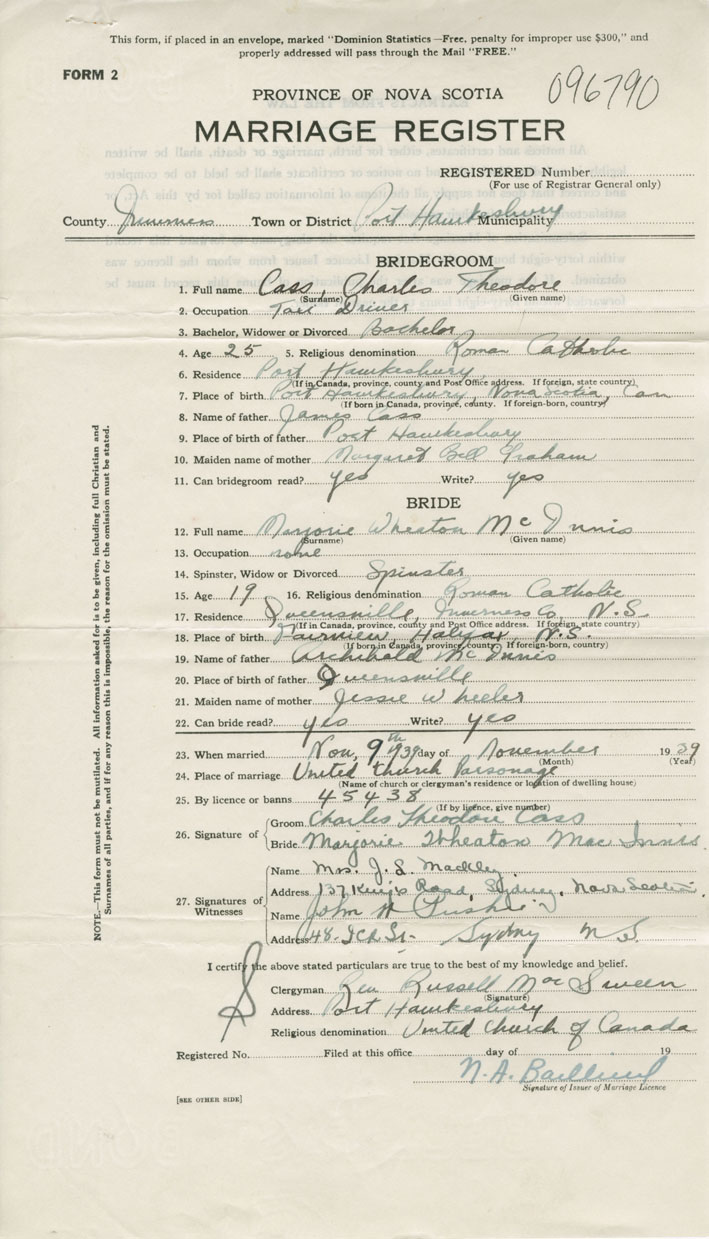 This form, if placed in an envelope, marked "Dominion Statistics—Free, penalty for improper use $300," and
properly addressed will pass through the Mail "FREE."
FORM 2
PROVINCE OF NOVA SCOTIA 096790
MARRIAGE REGISTER
REGISTERED Number
(For use of Registrar General only)
County Inverness Town or District Port Hawkesbury Municipality
BRIDEGROOM
1. Full name Cass, Charles Theodore
(Surname) (Given name)
2. Occupation Taxi Driver
3. Bachelor, Widower or Divorced Bachelor
4. Age 25 5. Religious denomination Roman Catholic
6. Residence Port Hawkesbury
(If in Canada, province, county and Post Office address. If foreign, state country)
7. Place of birth Port Hawkesbury, Nova Scotia, Can
(If born in Canada, province, county. If foreign-born, country)
8. Name of father James Cass
9. Place of birth of father Port Hawkesbury
10. Maiden name of mother Margaret Bell Graham
11. Can bridegroom read? yes Write? yes
BRIDE
12. Full name Marjorie Wheaton McInnis
(Surname) (Given name)
13. Occupation none
14. Spinster, Widow or Divorced Spinster
15. Age 19 16. Religious denomination Roman Catholic
17. Residence Queensville, Inverness Co, N.S
(If in Canada, province, county and Post Office address. If foreign, state country)
18. Place of birth Fairview, Halifax, N.S.
(If born in Canada, province, county. If foreign-born, country)
19. Name of father Archibald McInnis
20. Place of birth of father Queensville
21. Maiden name of mother Jessie Wheeler
22. Can bride read? yes Write? yes
23. When married Nov, 9th 1939 day of November 1939
(Month) (Year)
24. Place of marriage United Church Parsonage
(Name of church or clergyman's residence or location of dwelling house)
25. By licence or banns 45438
(If by licence, give number)
26. Signature of Groom Charles Theodore Cass
Bride Marjorie Wheaton MacInnis
27. Signatures of Witnesses
Name Mrs. J. S. Mackley
Address 137 King's Road, Sydney, Nova Scotia.
Name John
Address 48 St- Sydney N S
I certify the above stated particulars are true to the best of my knowledge and belief.
Clergyman Rev Russell MacSween
(Signature)
Address Port Hawkesbury
Religious denomination United Church of Canada
Registered No. Filed at this office day of 19
N. A.
Signature of Issuer of Marriage Licence
[SEE OTHER SIDE]
NOTE.—This form must not be mutilated. All information asked for is to be given, including full Christian and
Surnames of all parties, and if for any reason this is impossible, the reason for the omission must be stated.